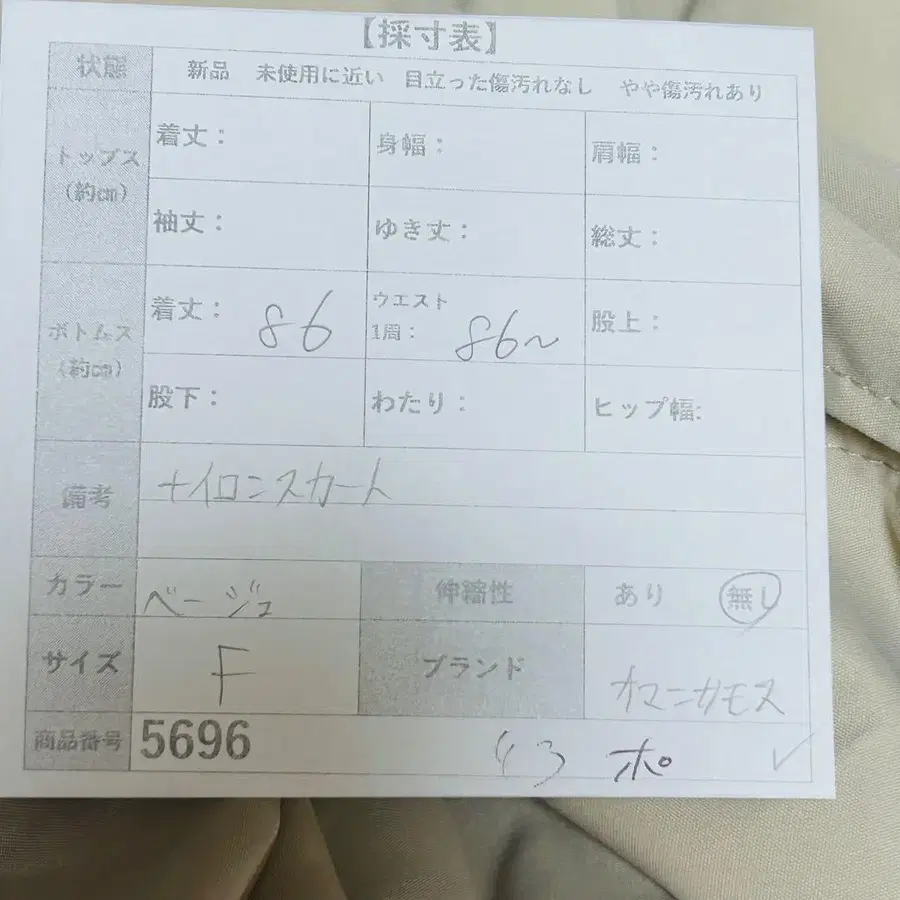 【採寸表】
状態 新品 未使用に近い 目立った傷汚れなし やや傷汚れあり
トップス
(約㎝)
着丈： 身幅： 肩幅：
袖丈： ゆき丈： 総丈：
ボトムス
(約㎝)
着丈： 86 ウエスト1周： 86～ 股上：
股下： わたり： ヒップ幅:
備考 ナイロンスカート
カラー ベージュ 伸縮性 あり 無し
サイズ F ブランド サマンサモス
商品番号 5696 ポ